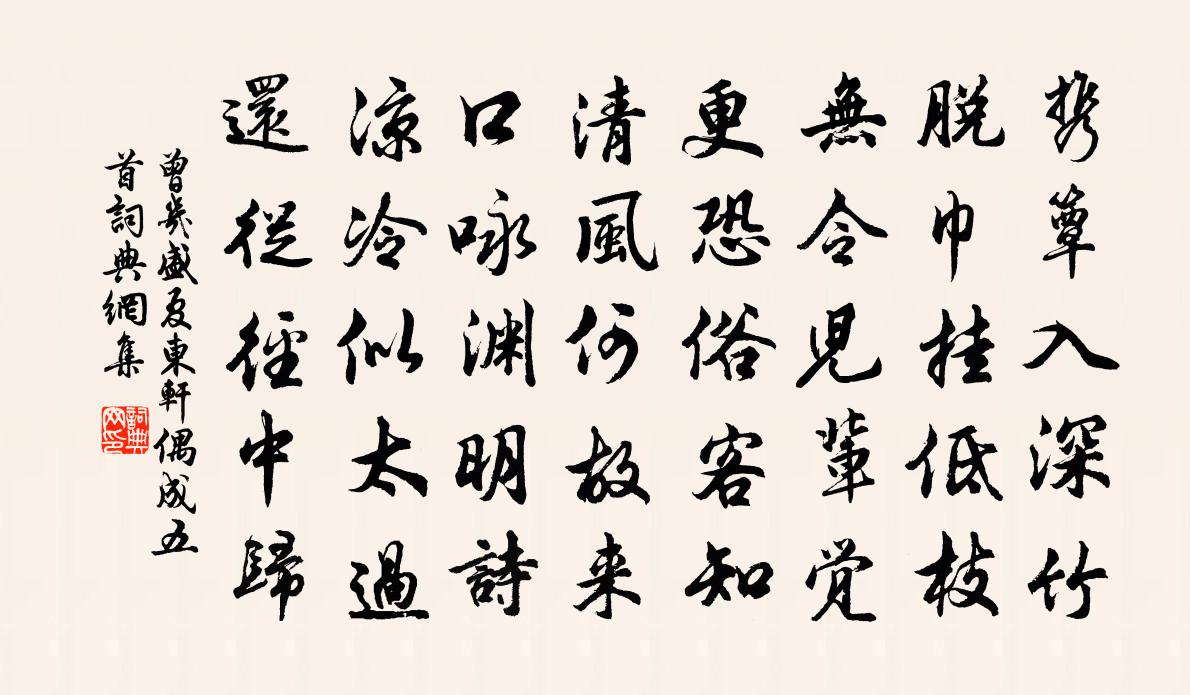 携簟入深竹
脱巾挂低枝
無令兒輩觉
更恐俗客知
清風何故来
口咏渊明詩
凉冷似太過
還從徑中歸
曾幾盛夏東軒偶成五
首詞典網集
詞典网印